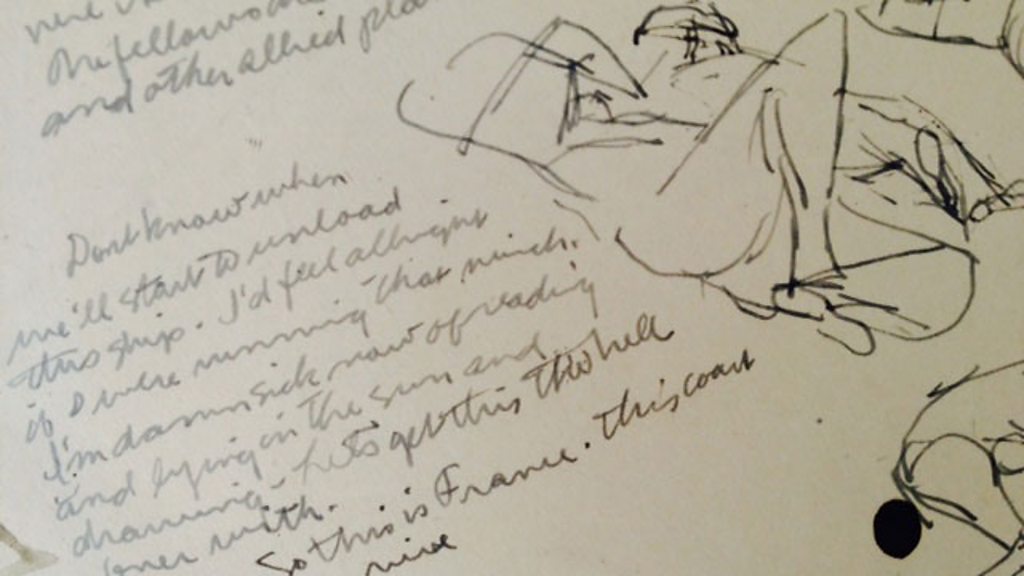 The fellows
and other allied
Dont know when
we'll start to unload
this ship. I'd feel allright
if I were running that winch.
I'm damn sick now of reading
and lying in the sun and
drawing. Let's get this the hell
over with.
So this is France. This coast